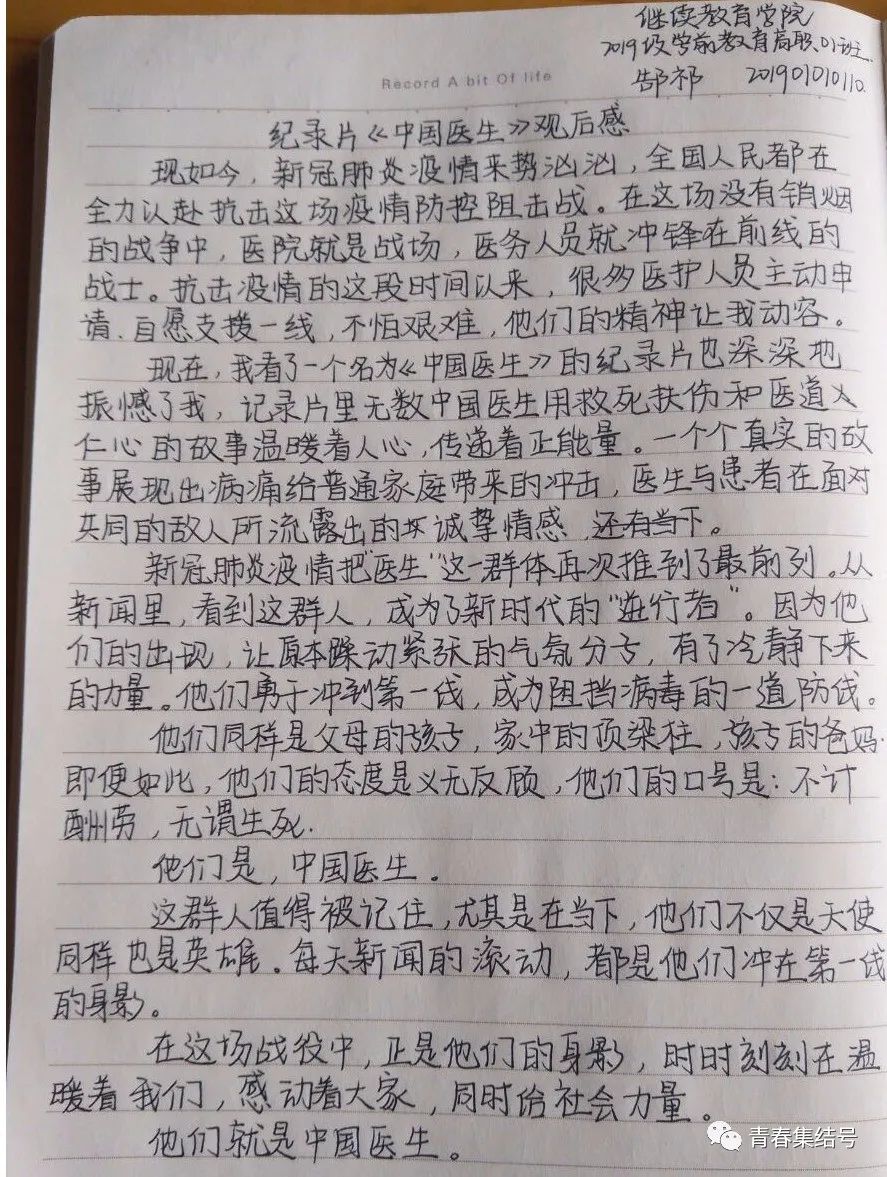 继续教育学院
2019级学前教育高职01班
郜祁 201901010110
Record A bit Of life
纪录片《中国医生》观后感
现如今，新冠肺炎疫情来势汹汹，全国人民都在
全力以赴抗击这场疫情防控阻击战。在这场没有销烟
的战争中，医院就是战场，医务人员就冲锋在前线的
战士。抗击疫情的这段时间以来，很多医护人员主动申
请、自愿支援一线，不怕艰难，他们的精神让我动容。
现在，我看了一个名为《中国医生》的纪录片也深深地
振憾了我，记录片里无数中国医生用救死扶伤和医道
仁心的故事温暖着人心，传递着正能量。一个个真实的故
事展现出病痛给普通家庭带来的冲击，医生与患者在面对
共同的敌人所流露出的诚挚情感，还有当下。
新冠肺炎疫情把"医生"这一群体再次推到了最前列。从
新闻里，看到这群人，成为了新时代的"逆行者"。因为他
们的出现，让原本躁动紧张的气氛分子，有了冷静下来
的力量。他们勇于冲到第一线，成为阻挡病毒的一道防线。
他们同样是父母的孩子，家中的顶梁柱，孩子的爸妈.
即便如此，他们的态度是义无反顾，他们的口号是：不计
酬劳，无谓生死.
他们是，中国医生。
这群人值得被记住，尤其是在当下，他们不仅是天使
同样也是英雄。每天新闻的滚动，都是他们冲在第一线
的身影。
在这场战役中，正是他们的身影，时时刻刻在温
暖着我们，感动着大家，同时给社会力量。
他们就是中国医生。
青春集结号